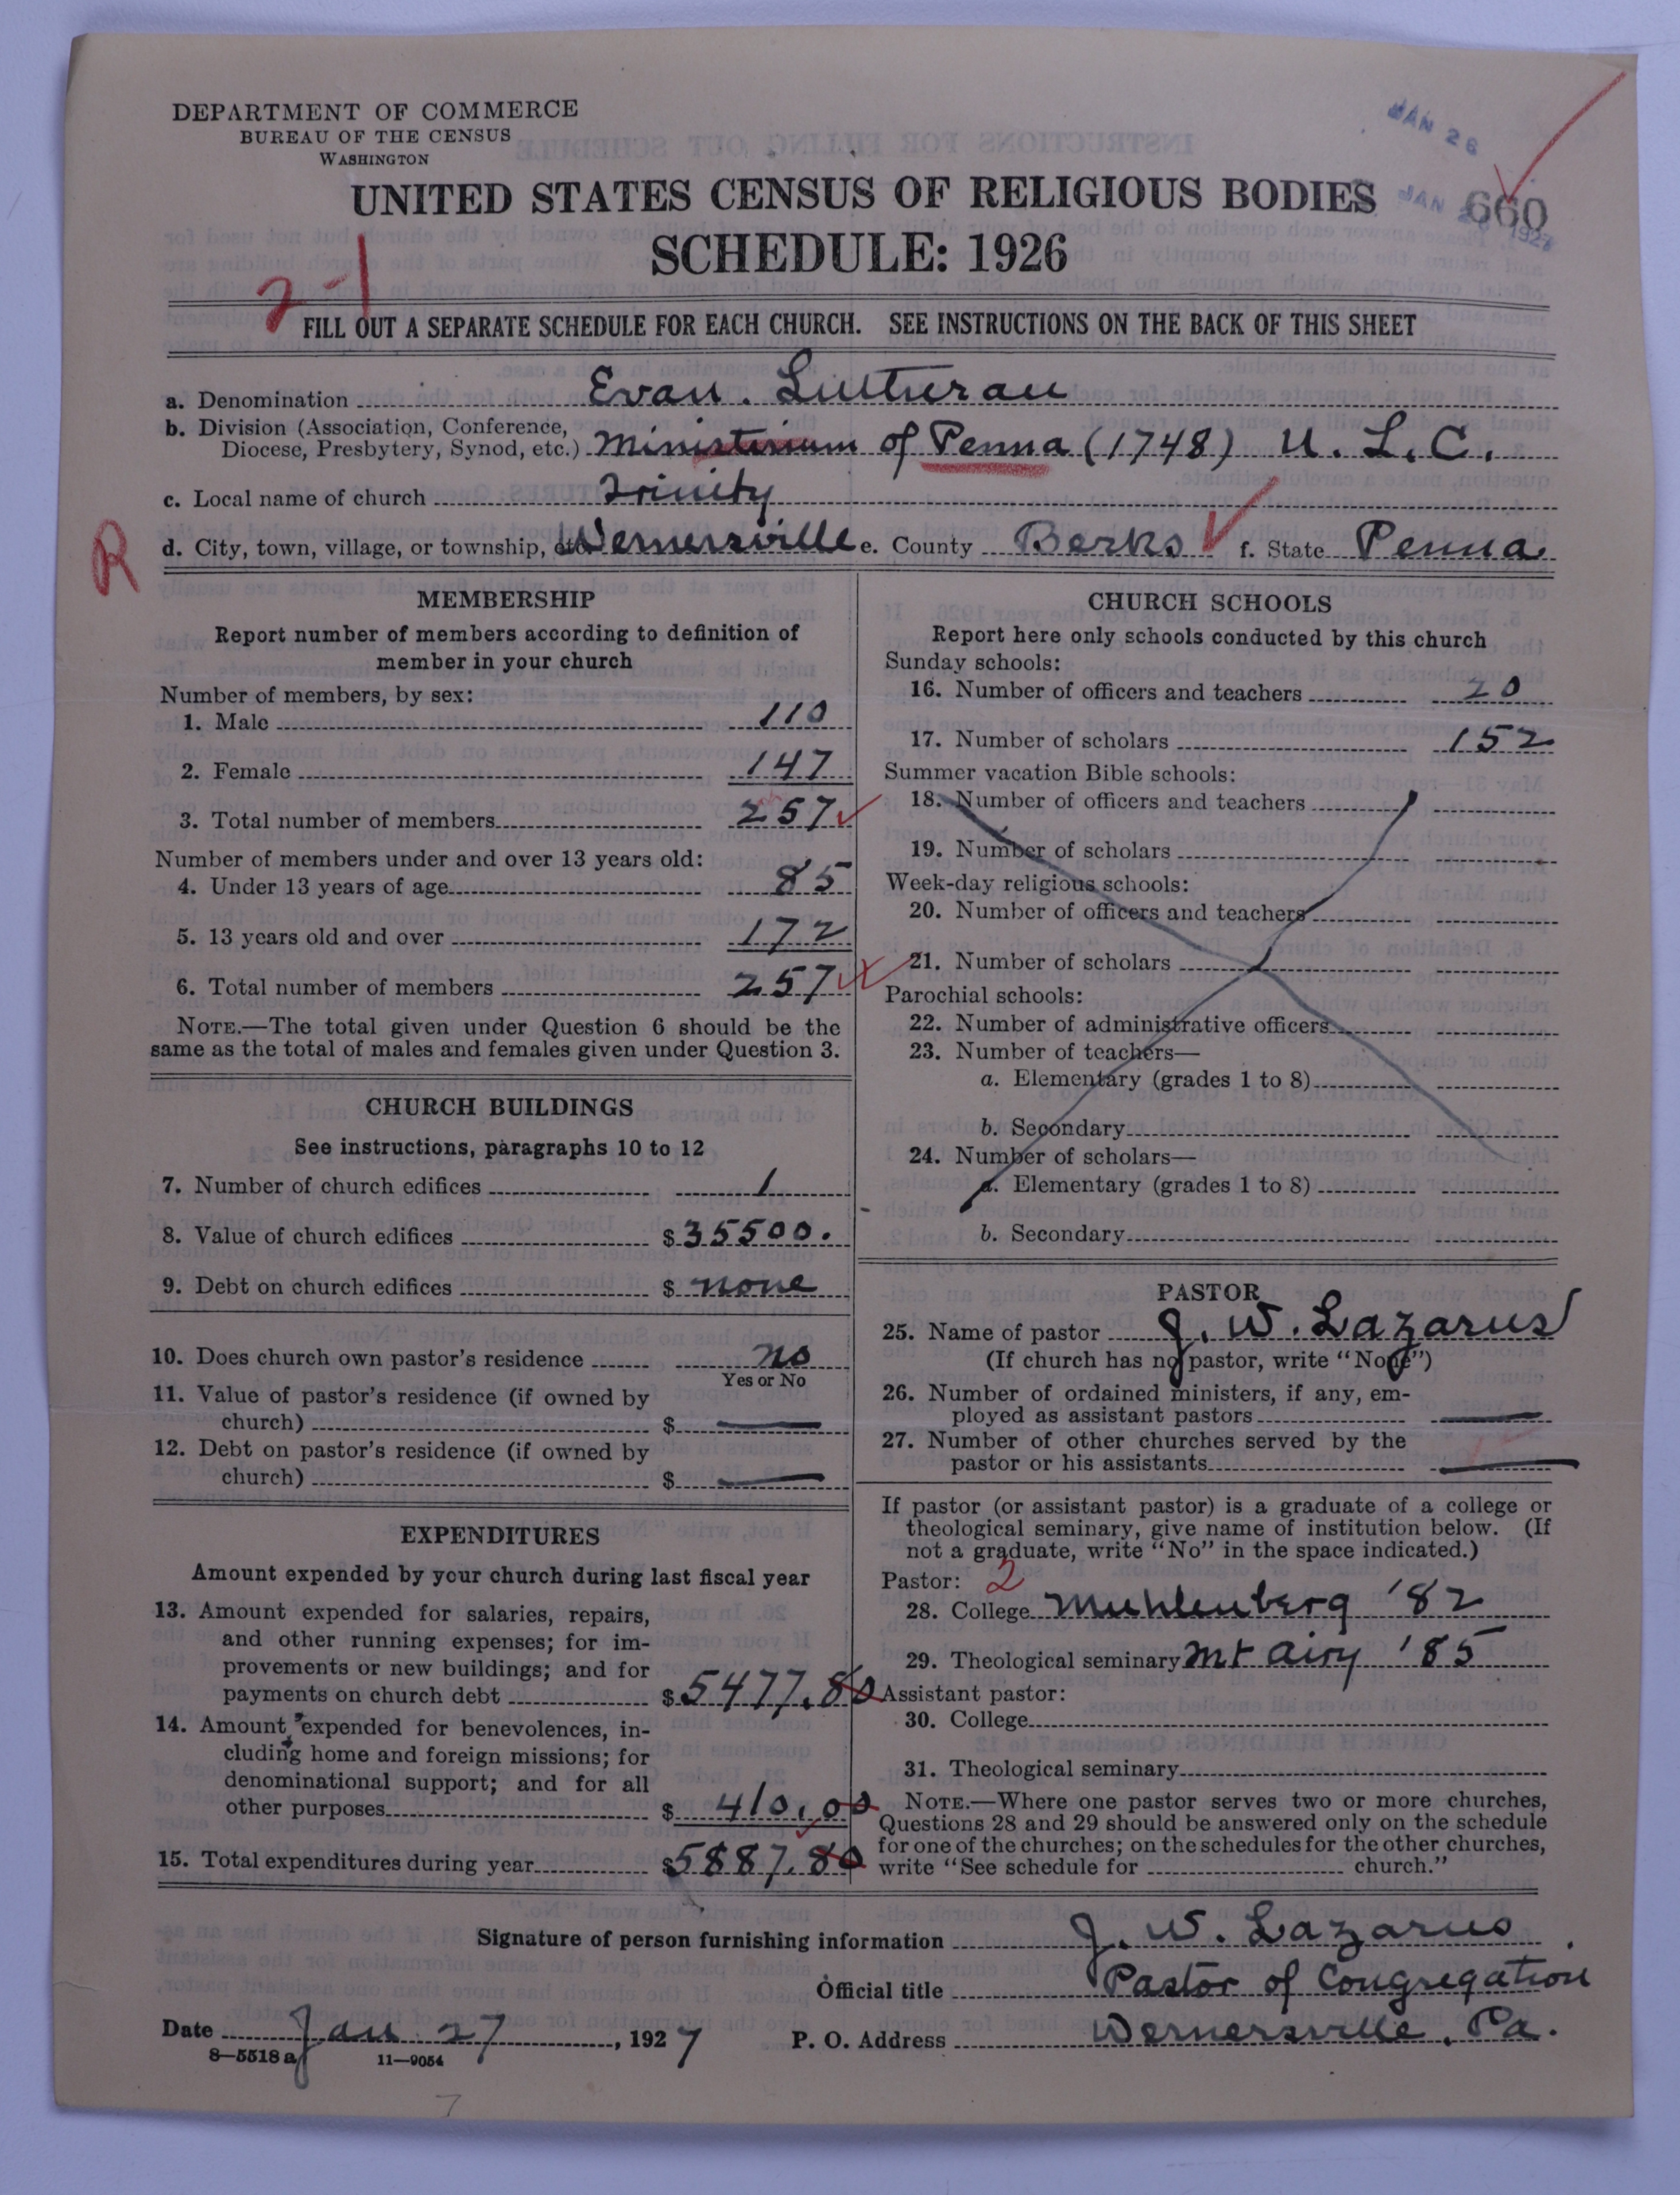 DEPARTMENT OF COMMERCE
BUREAU OF THE CENSUS
WASHINGTON
JAN 26
UNITED STATES CENSUS OF RELIGIOUS BODIES
JAN 1927
660
SCHEDULE: 1926
2-1
FILL OUT A SEPARATE SCHEDULE FOR EACH CHURCH. SEE INSTRUCTIONS ON THE BACK OF THIS SHEET
a. Denomination Evan. Lutheran
b. Division (Association, Conference,
Diocese, Presbytery, Synod, etc.) Ministerium of Penna (1748) U. L. C.
c. Local name of church Trinity
R
d. City, town, village, or township, etc. Wernersville e. County Berks f. State Penna.
MEMBERSHIP
Report number of members according to definition of
member in your church
Number of members, by sex:
1. Male 110
2. Female 147
3. Total number of members 257
Number of members under and over 13 years old:
4. Under 13 years of age 85
5. 13 years old and over 172
6. Total number of members 257
NOTE.—The total given under Question 6 should be the
same as the total of males and females given under Question 3.
CHURCH BUILDINGS
See instructions, paragraphs 10 to 12
7. Number of church edifices 1
8. Value of church edifices $ 35500.
9. Debt on church edifices $ none
10. Does church own pastor's residence no
Yes or No
11. Value of pastor's residence (if owned by
church) $ —
12. Debt on pastor's residence (if owned by
church) $ —
EXPENDITURES
Amount expended by your church during last fiscal year
13. Amount expended for salaries, repairs,
and other running expenses; for im-
provements or new buildings; and for
payments on church debt $ 5477.80
14. Amount expended for benevolences, in-
cluding home and foreign missions; for
denominational support; and for all
other purposes $ 410.00
15. Total expenditures during year $ 5887.80
CHURCH SCHOOLS
Report here only schools conducted by this church
Sunday schools:
16. Number of officers and teachers 20
17. Number of scholars 152
Summer vacation Bible schools:
18. Number of officers and teachers
19. Number of scholars
Week-day religious schools:
20. Number of officers and teachers
21. Number of scholars
Parochial schools:
22. Number of administrative officers
23. Number of teachers—
a. Elementary (grades 1 to 8)
b. Secondary
24. Number of scholars—
a. Elementary (grades 1 to 8)
b. Secondary
PASTOR
25. Name of pastor J. W. Lazarus
(If church has no pastor, write "None")
26. Number of ordained ministers, if any, em-
ployed as assistant pastors —
27. Number of other churches served by the
pastor or his assistants —
If pastor (or assistant pastor) is a graduate of a college or
theological seminary, give name of institution below. (If
not a graduate, write "No" in the space indicated.)
Pastor: 2
28. College Muhlenberg '82
29. Theological seminary Mt Airy '85
Assistant pastor:
30. College
31. Theological seminary
NOTE.—Where one pastor serves two or more churches,
Questions 28 and 29 should be answered only on the schedule
for one of the churches; on the schedules for the other churches,
write "See schedule for church."
Signature of person furnishing information J. W. Lazarus
Official title Pastor of Congregation
Date Jan 27, 1927 P. O. Address Wernersville, Pa.
8—5518 a 11—9054